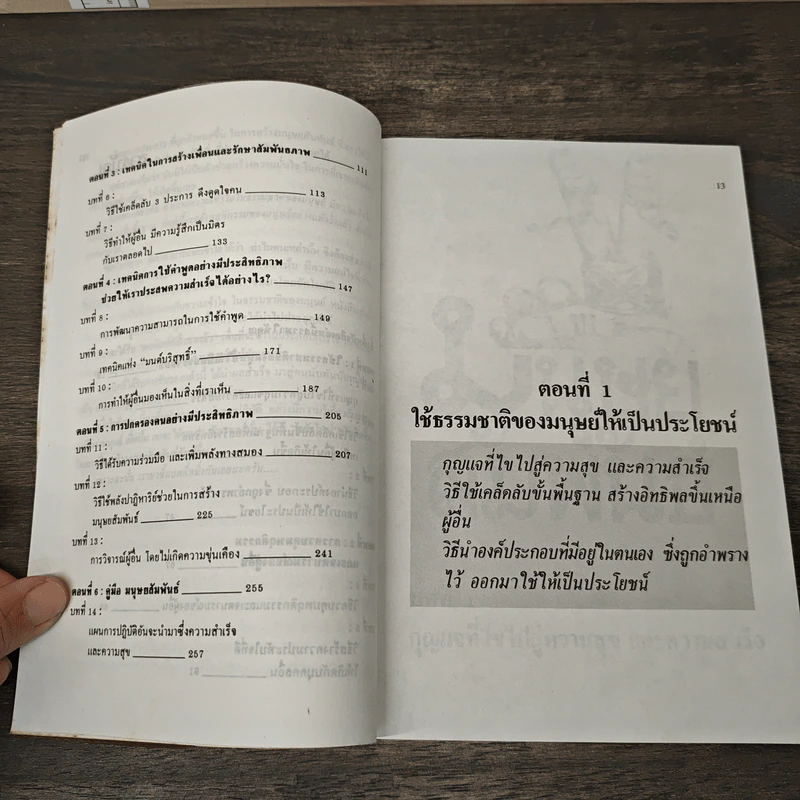 ตอนที่ 3 : เทคนิคในการสร้างเพื่อนและรักษาสัมพันธภาพ 111
บทที่ 6 :
วิธีใช้เคล็ดลับ 3 ประการ ดึงดูดใจคน 113
บทที่ 7 :
วิธีทำให้ผู้อื่น มีความรู้สึกเป็นมิตร
กับเราตลอดไป 133
ตอนที่ 4 : เทคนิคการใช้คำพูดอย่างมีประสิทธิภาพ
ช่วยให้เราประสพความสำเร็จได้อย่างไร? 147
บทที่ 8 :
การพัฒนาความสามารถในการใช้คำพูด 149
บทที่ 9 :
เทคนิคแห่ง “มนต์บริสุทธิ์” 171
บทที่ 10 :
การทำให้ผู้อื่นมองเห็นในสิ่งที่เราเห็น 187
ตอนที่ 5 : การปกครองคนอย่างมีประสิทธิภาพ 205
บทที่ 11 :
วิธีได้รับความร่วมมือ และเพิ่มพลังทางสมอง 207
บทที่ 12 :
วิธีใช้พลังปาฏิหาริย์ช่วยในการสร้าง
มนุษยสัมพันธ์ 225
บทที่ 13 :
การวิจารณ์ผู้อื่น โดยไม่เกิดความขุ่นเคือง 241
ตอนที่ 6 : คู่มือ มนุษยสัมพันธ์ 255
บทที่ 14 :
แผนการปฏิบัติอันจะนำมาซึ่งความสำเร็จ
และความสุข 257
13
ตอนที่ 1
ใช้ธรรมชาติของมนุษย์ให้เป็นประโยชน์
กุญแจที่ไขไปสู่ความสุข และความสำเร็จ
วิธีใช้เคล็ดลับขั้นพื้นฐาน สร้างอิทธิพลขึ้นเหนือ
ผู้อื่น
วิธีนำองค์ประกอบที่มีอยู่ในตนเอง ซึ่งถูกอำพราง
ไว้ ออกมาใช้ให้เป็นประโยชน์